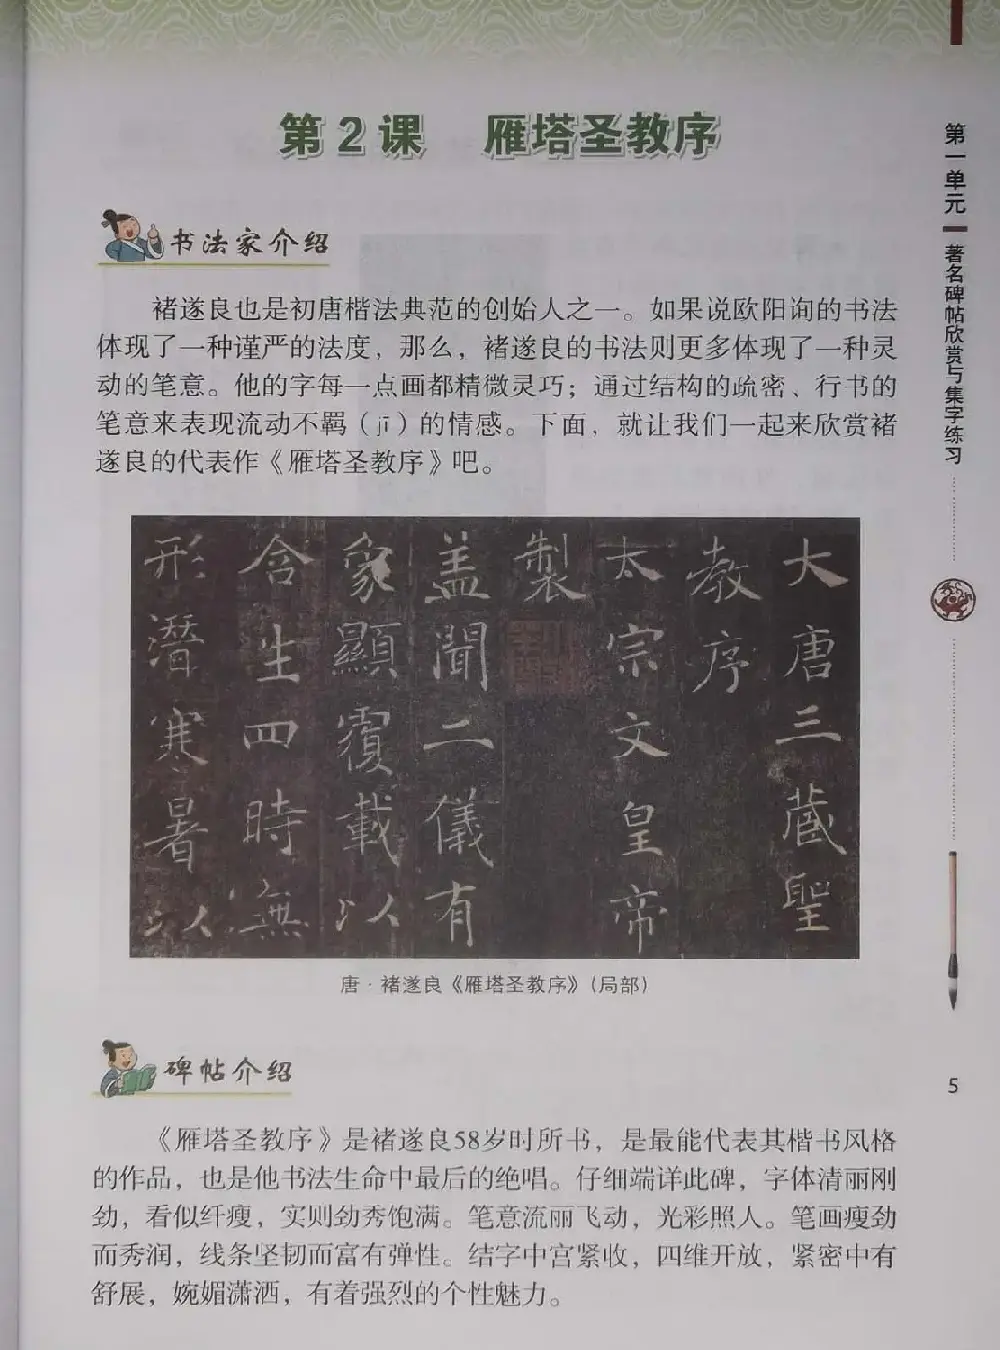 第2课 雁塔圣教序
书法家介绍
褚遂良也是初唐楷法典范的创始人之一。如果说欧阳询的书法
体现了一种谨严的法度，那么，褚遂良的书法则更多体现了一种灵
动的笔意。他的字每一点画都精微灵巧；通过结构的疏密、行书的
笔意来表现流动不羁（jī）的情感。下面，就让我们一起来欣赏褚
遂良的代表作《雁塔圣教序》吧。
大唐三蔵聖
教序
太宗文皇帝
製
盖聞二儀有
象顯覆載以
含生四時無
形潛寒暑以
唐·褚遂良《雁塔圣教序》（局部）
碑帖介绍
《雁塔圣教序》是褚遂良58岁时所书，是最能代表其楷书风格
的作品，也是他书法生命中最后的绝唱。仔细端详此碑，字体清丽刚
劲，看似纤瘦，实则劲秀饱满。笔意流丽飞动，光彩照人。笔画瘦劲
而秀润，线条坚韧而富有弹性。结字中宫紧收，四维开放，紧密中有
舒展，婉媚潇洒，有着强烈的个性魅力。
第一单元
著名碑帖欣赏与集字练习
5